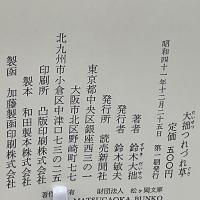 大拙つれづれ草
定価 五〇〇円
昭和四十一年十二月二十五日 第一刷発行
著者 鈴木大拙
発行者 鈴木敏夫
発行所 読売新聞社
東京都中央区銀座西三の一
大阪市北区野崎町七七
北九州市小倉区中津口七三の二五
印刷所 凸版印刷株式会社
製本 和田製本株式会社
製函 加藤製函印刷株式会社
財団法人 松ヶ岡文庫
MATSUGAOKA BUNKO